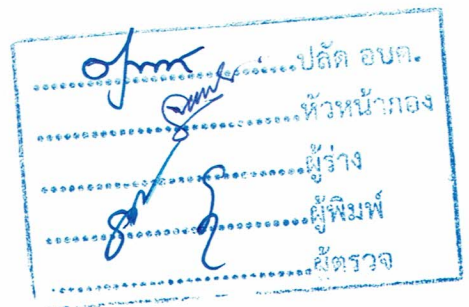 ....................ปลัด อบต.
....................หัวหน้ากอง
....................ผู้ร่าง
....................ผู้พิมพ์
....................ผู้ตรวจ